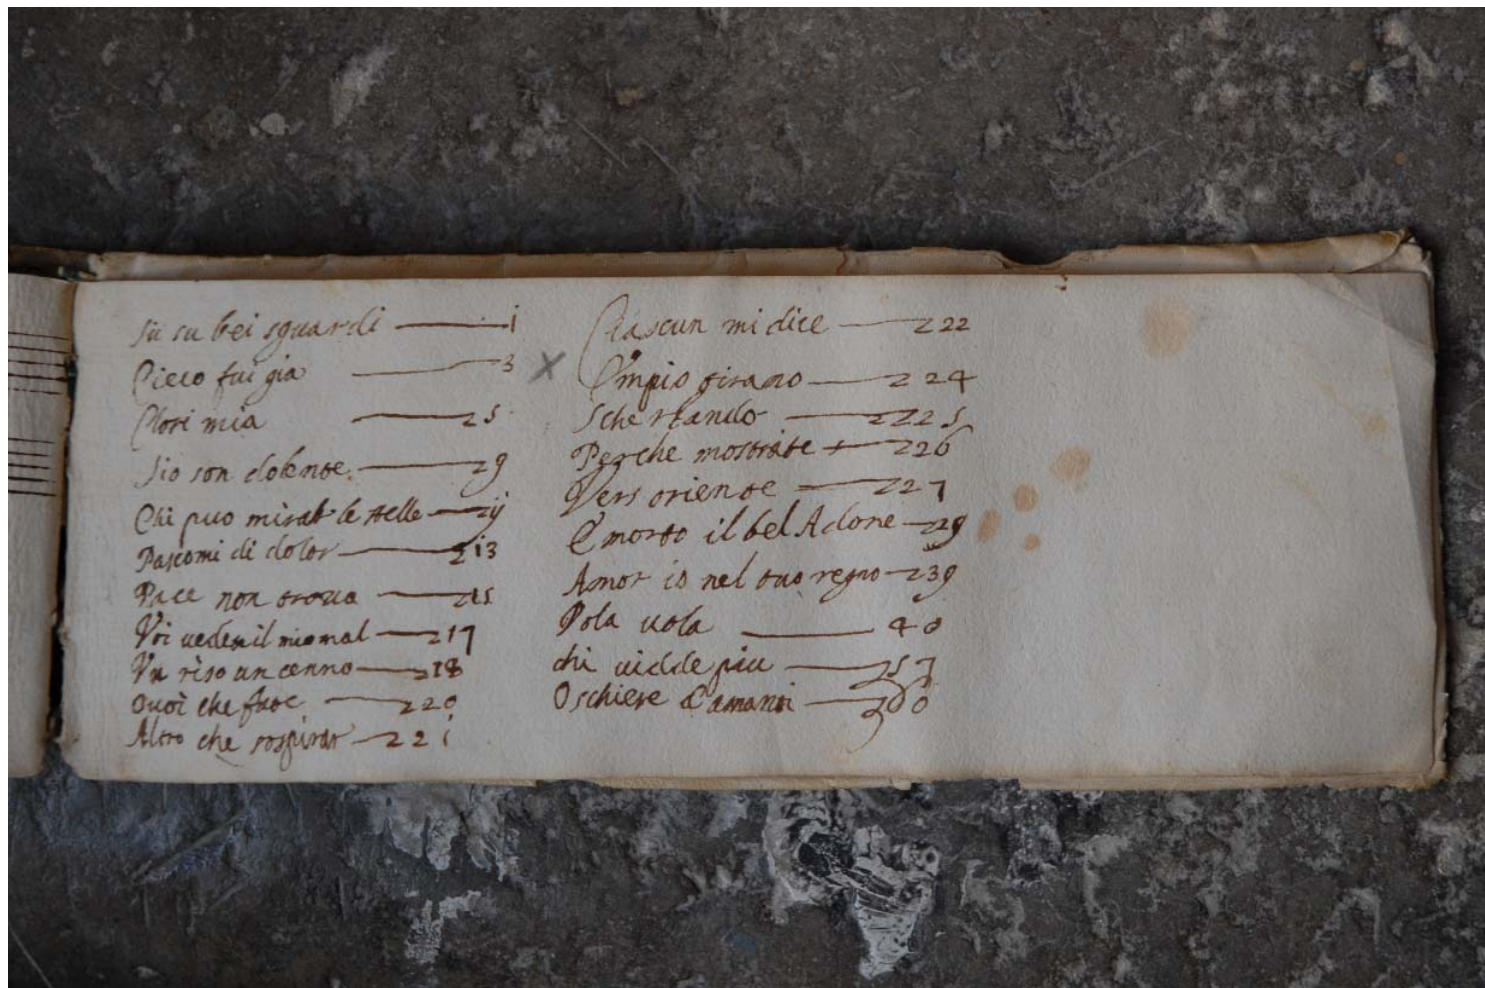 Sù su bei sguardi — 1
Cieco fui gia — 3
Clori mia — 5
S'io son dolente — 9
Chi puo mirar le stelle — ij
Pascomi di dolor — 13
Pace non trova — 15
Voi vedete il mio mal — 17
Un riso un cenno — 18
che — 20
Altro che sospirar — 21
Ciascun mi dice — 22
Empio tirano — 24
Scherzando — 25
Perche mostrate — 26
Vers oriente — 27
È morto il bel Adone — 29
Amor io nel tuo regno — 39
Vola vola — 40
chi vidde piu — 57
O schiere d'amanti — 60